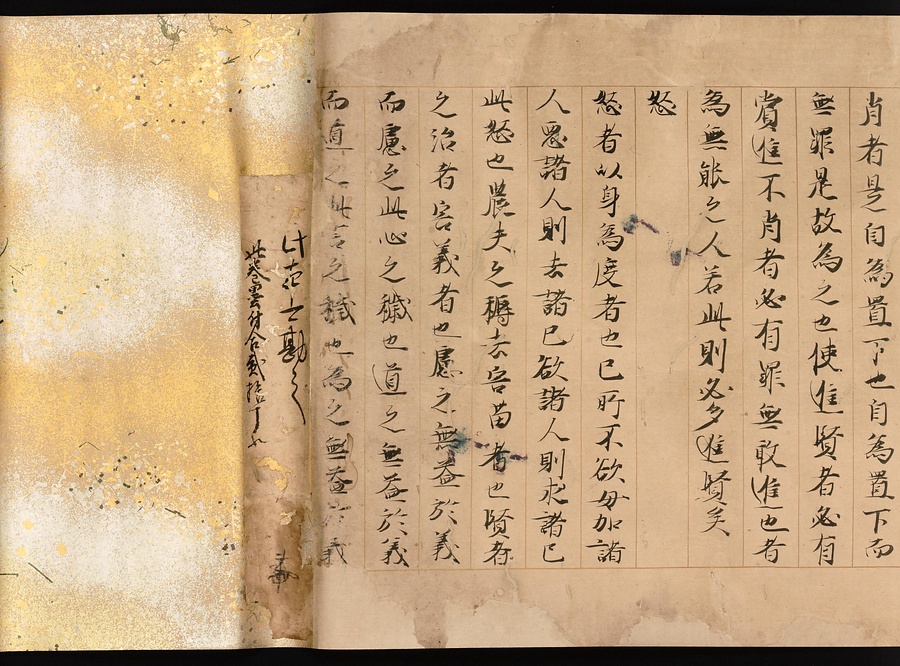 肖者是自為置下也自為置下而
無罪是故為之也使進賢者必有
賞進不肖者必有罪無敢進也者
為無能之人若此則必多進賢矣
恕
恕者以身為度者也己所不欲毋加諸
人惡諸人則去諸己欲諸人則求諸己
此恕也農夫之耨去害苗者也賢者
之治者害義者也慮之無益於義
而慮之此心之穢也道之無益於義
而道之此言之穢也為之無益於義